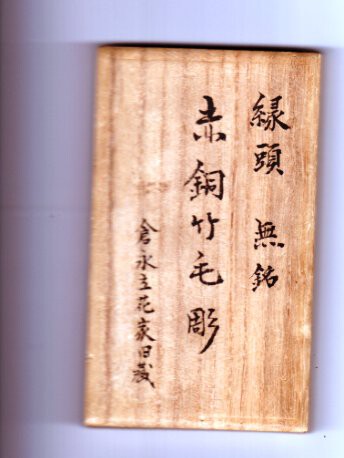 縁頭　無銘
赤銅竹毛彫
倉永立花家旧蔵